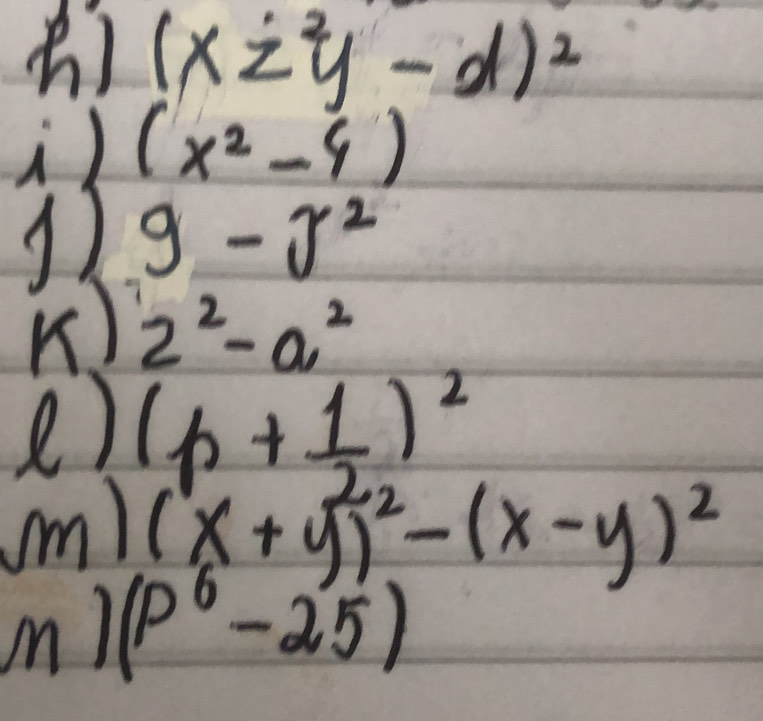 h) (xz²y - d)²
i) (x² - 9)
j) 9 - r²
k) z² - a²
l) (p + 1/2)²
m) (x + y)² - (x - y)²
n) (p⁶ - 25)